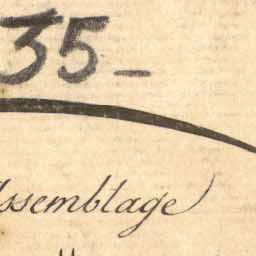 35-
Assemblage